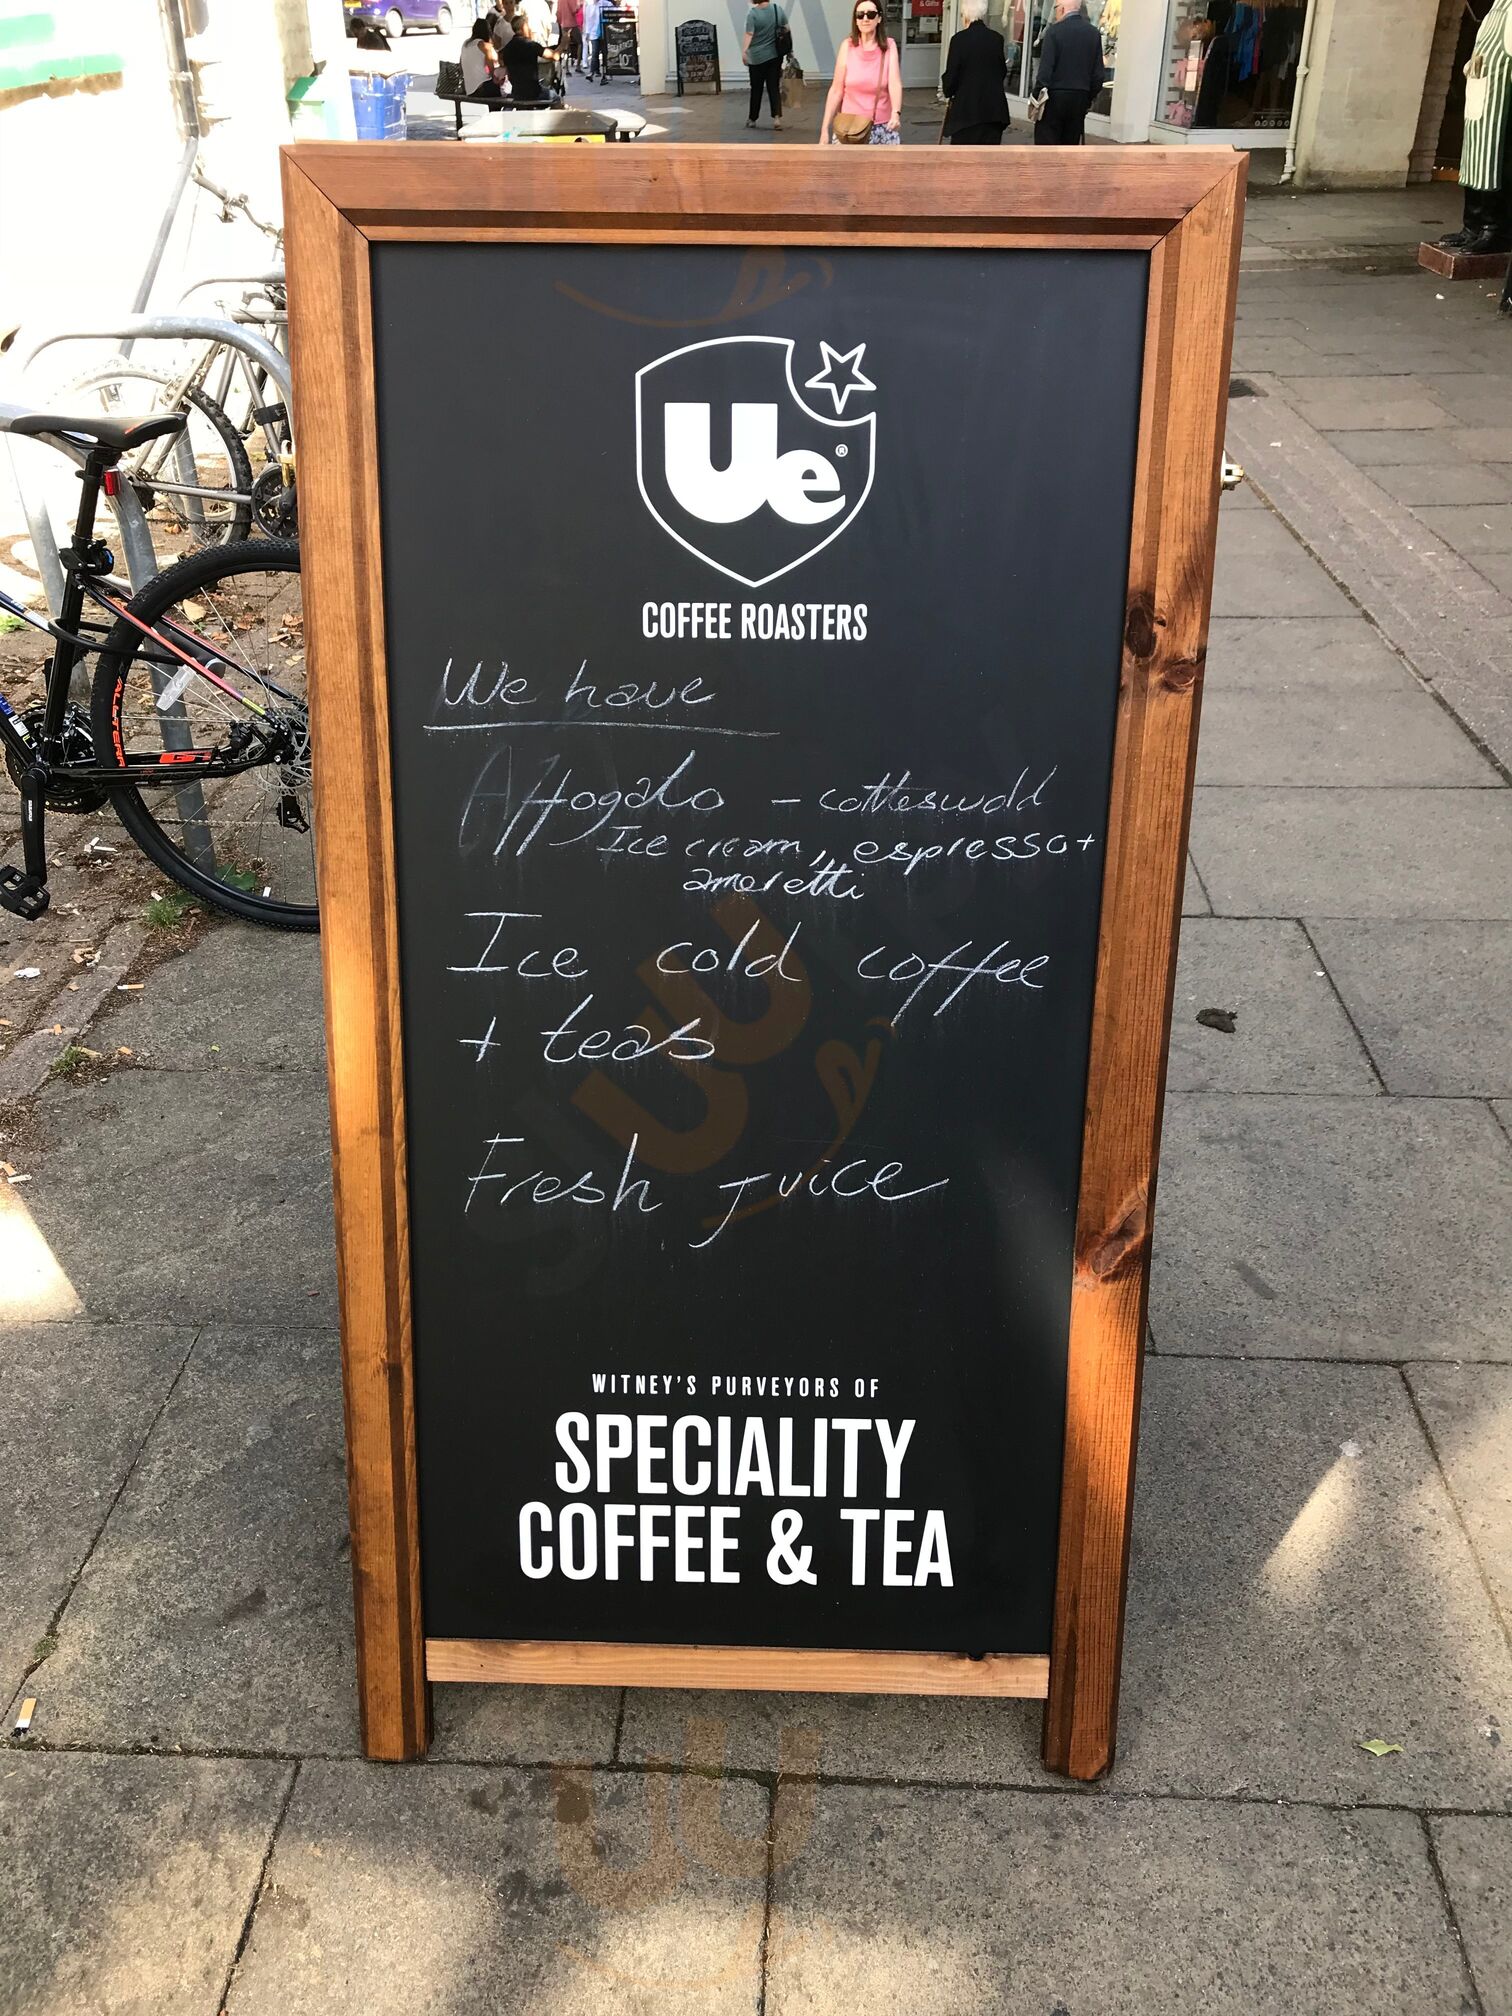 Ue®
COFFEE ROASTERS
We have
Affogato - cotteswold
Ice cream, espresso +
ameretti
Ice cold coffee
+ teas
Fresh juice
WITNEY'S PURVEYORS OF
SPECIALITY
COFFEE & TEA